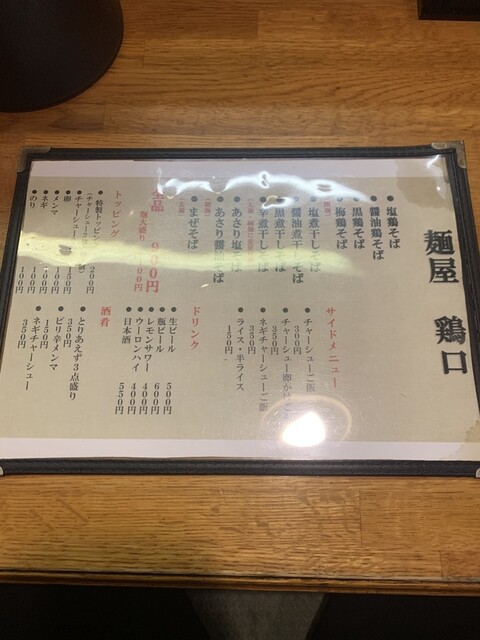 麺屋 鶏口
塩鶏そば
醤油鶏そば
黒鶏そば
梅鶏そば
塩煮干しそば
醤油煮干しそば
黒煮干しそば
煮干しそば
あさり塩そば
あさり醤油そば
まぜそば
全品 900円
トッピング
特製トッピング 200円
(チャーシュー
チャーシュー
卵 150円
メンマ 100円
ネギ 100円
のり 100円
サイドメニュー
チャーシューご飯
300円
チャーシュー卵かけご
350円
ネギチャーシューご飯
350円
ライス・半ライス
150円
ドリンク
生ビール 500円
瓶ビール 600円
レモンサワー 400円
ウーロンハイ 400円
日本酒 550円
酒肴
とりあえず3点盛り
350円
ピリ辛メンマ
150円
ネギチャーシュー
350円